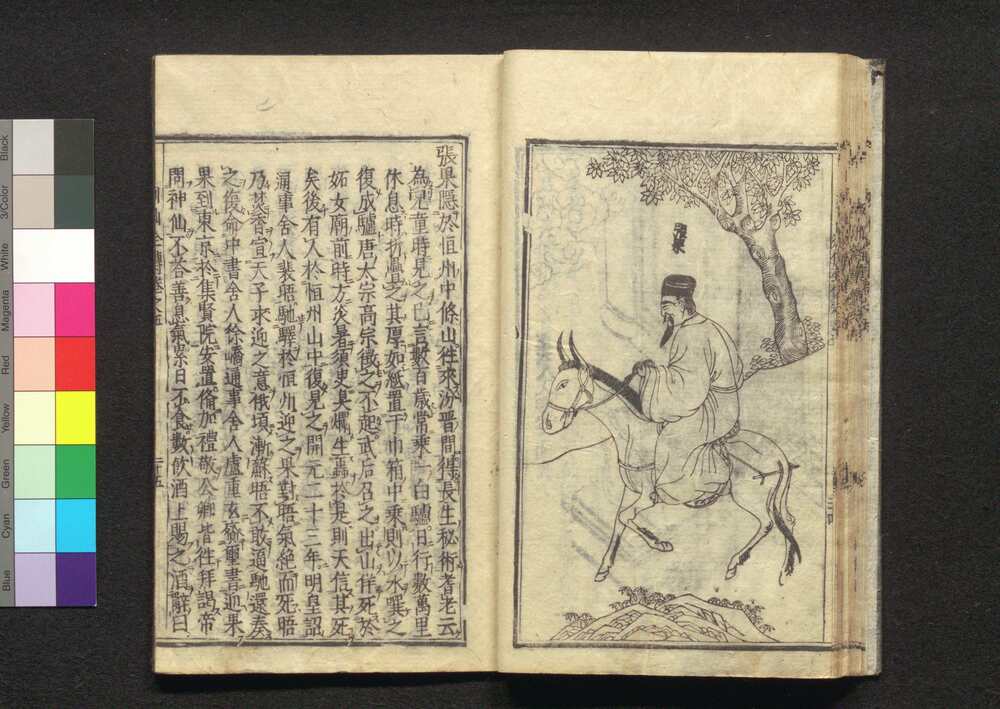 張果
張果隱於恒州中條山往來汾晉間得長生秘術耆老云
為兒童時見之已言數百歲常乘一白驢日行數萬里
休息時折疊之其厚如紙置于巾箱中乘則以水噀之
復成驢唐太宗高宗徵之不起武后召之出山佯死於
妬女廟前時方炎暑須臾臭爛生蟲於是則天信其死
矣後有人於恒州山中復見之開元二十三年明皇詔
通事舍人裴晤馳驛於恒州迎之果對晤氣絕而死晤
乃焚香宣天子求迎之意俄頃漸蘇晤不敢逼馳還奏
之復命中書舍人徐嶠通事舍人盧重玄齎璽書迎果
果到東京於集賢院安置備加禮敬公卿皆往拜謁帝
問神仙不答善息氣累日不食數飲酒上賜之酒辭曰
二十五
Black
3/Color
White
Magenta
Red
Yellow
Green
Cyan
Blue